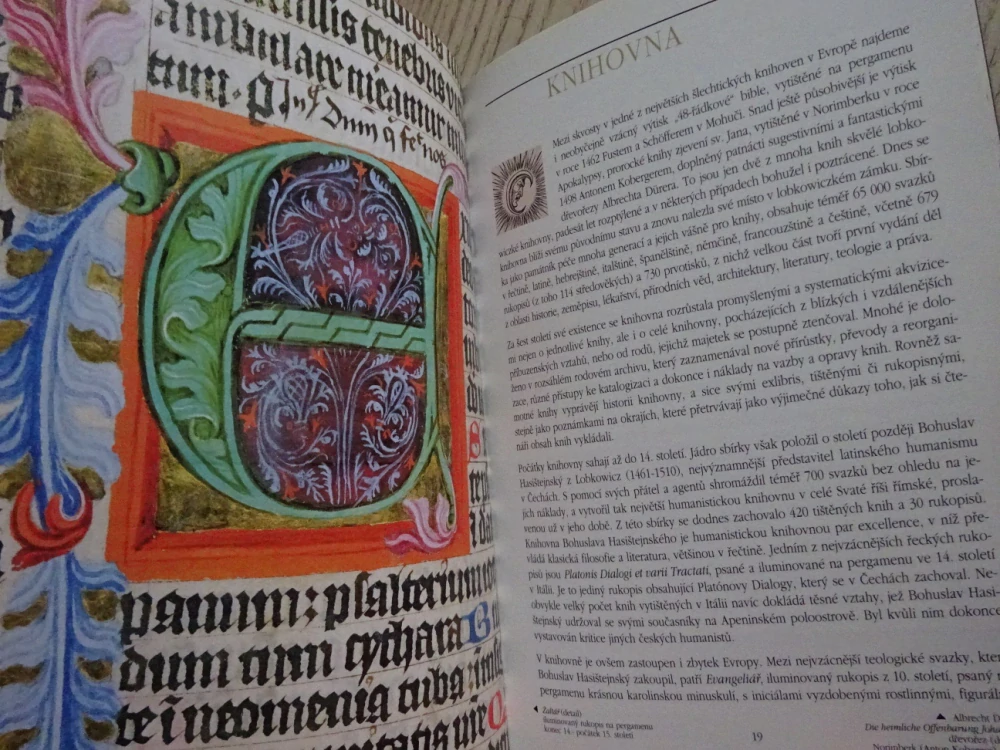 psalterium
dum cum cythara
neomenia tuba
KNIHOVNA
Mezi skvosty v jedné z největších šlechtických knihoven v Evropě najdeme
i neobyčejně vzácný výtisk „48-řádkové“ bible, vytištěné na pergamenu
v roce 1462 Fustem a Schöfferem v Mohuči. Snad ještě působivější je výtisk
Apokalypsy, prorocké knihy zjevení sv. Jana, vytištěné v Norimberku v roce
1498 Antonem Kobergerem, doplněný patnácti sugestivními a fantastickými
dřevořezy Albrechta Dürera. To jsou jen dvě z mnoha knih skvělé lobko-
wické knihovny, padesát let rozptýlené a v některých případech bohužel i poztrácené. Dnes se
knihovna blíží svému původnímu stavu a znovu nalezla své místo v lobkowiczkém zámku. Sbír-
ka jako památník péče mnoha generací a jejich vášně pro knihy, obsahuje téměř 65 000 svazků
v řečtině, latině, hebrejštině, italštině, španělštině, němčině, francouzštině a češtině, včetně 679
rukopisů (z toho 114 středověkých) a 730 prvotisků, z nichž velkou část tvoří první vydání děl
z oblasti historie, zeměpisu, lékařství, přírodních věd, architektury, literatury, teologie a práva.
Za šest století své existence se knihovna rozrůstala promyšlenými a systematickými akvizice-
mi nejen o jednotlivé knihy, ale i o celé knihovny, pocházejících z blízkých i vzdálenějších
příbuzenských vztahů, nebo od rodů, jejichž majetek se postupně ztenčoval. Mnohé je dolo-
ženo v rozsáhlém rodovém archivu, který zaznamenával nové přírůstky, převody a reorgani-
zace, různé přístupy ke katalogizaci a dokonce i náklady na vazby a opravy knih. Rovněž sa-
motné knihy vyprávějí historii knihovny, a sice svými exlibris, tištěnými či rukopisnými,
stejně jako poznámkami na okrajích, které přetrvávají jako výjimečné důkazy toho, jak si čte-
náři obsah knih vykládali.
Počátky knihovny sahají až do 14. století. Jádro sbírky však položil o století později Bohuslav
Hasištejnský z Lobkowicz (1461-1510), nejvýznamnější představitel latinského humanismu
v Čechách. S pomocí svých přátel a agentů shromáždil téměř 700 svazků bez ohledu na je-
jich náklady, a vytvořil tak největší humanistickou knihovnu v celé Svaté říši římské, prosla-
venou už v jeho době. Z této sbírky se dodnes zachovalo 420 tištěných knih a 30 rukopisů.
Knihovna Bohuslava Hasištejnského je humanistickou knihovnou par excellence, v níž pře-
vládá klasická filosofie a literatura, většinou v řečtině. Jedním z nejvzácnějších řeckých ruko-
pisů jsou Platonis Dialogi et varii Tractati, psané a iluminované na pergamenu ve 14. století
v Itálii. Je to jediný rukopis obsahující Platónovy Dialogy, který se v Čechách zachoval. Ne-
obvykle velký počet knih vytištěných v Itálii navíc dokládá těsné vztahy, jež Bohuslav Hasi-
štejnský udržoval se svými současníky na Apeninském poloostrově. Byl kvůli nim dokonce
vystavován kritice jiných českých humanistů.
V knihovně je ovšem zastoupen i zbytek Evropy. Mezi nejvzácnější teologické svazky, kter
Bohuslav Hasištejnský zakoupil, patří Evangeliář, iluminovaný rukopis z 10. století, psaný n
pergamenu krásnou karolinskou minuskulí, s iniciálami vyzdobenými rostlinnými, figurál
Žaltář (detail)
iluminovaný rukopis na pergamenu
konec 14.- počátek 15. století
19
Albrecht D
Die heimliche Offenbarung Joh
dřevořez